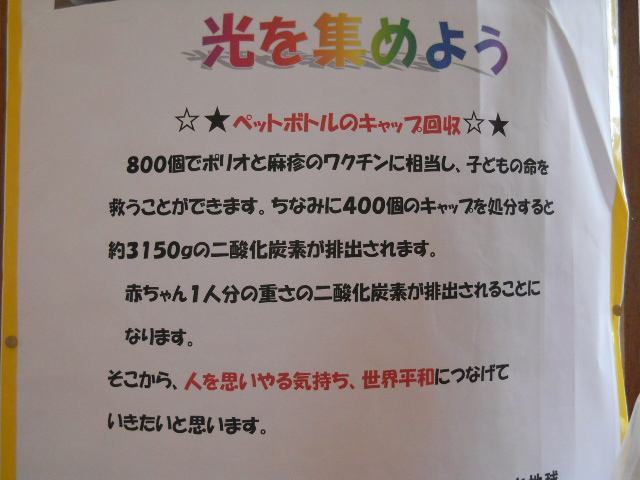 光を集めよう
☆★ペットボトルのキャップ回収☆★
800個でポリオと麻疹のワクチンに相当し、子どもの命を
救うことができます。ちなみに400個のキャップを処分すると
約3150gの二酸化炭素が排出されます。
赤ちゃん1人分の重さの二酸化炭素が排出されることに
なります。
そこから、人を思いやる気持ち、世界平和につなげて
いきたいと思います。
地球